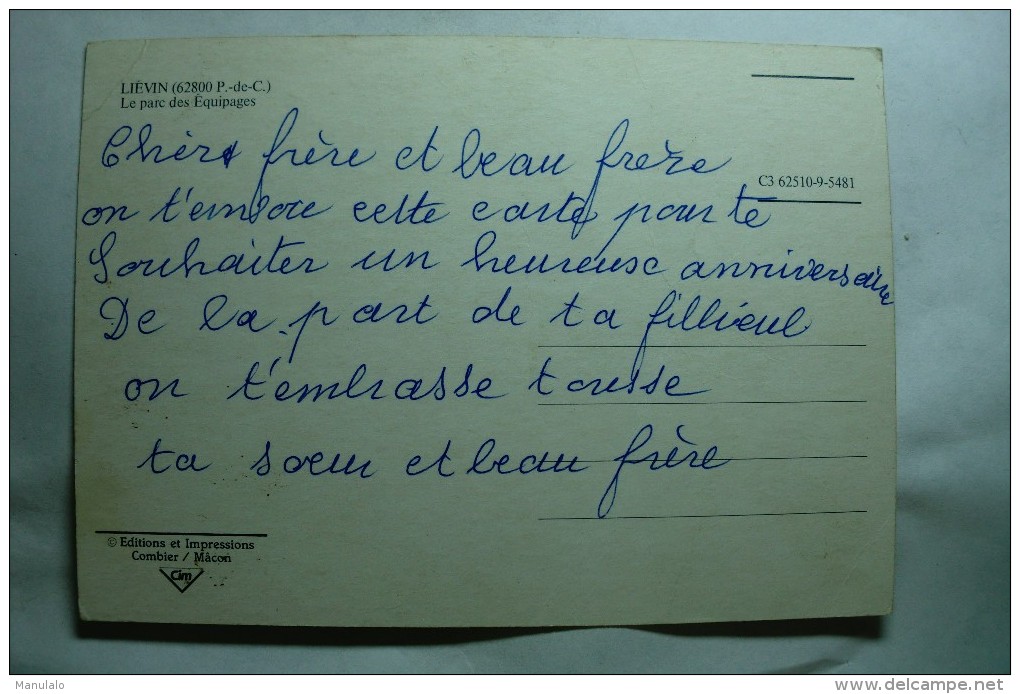 LIÉVIN (62800 P.-de-C.)
Le parc des Équipages
Chère frère et beau frère
C3 62510-9-5481
on t'envoie cette carte pour te
Souhaiter un heureuse anniversaire
De la part de ta fillieul
on t'embrasse tousse
ta sœur et beau frère
© Editions et Impressions
Combier / Mâcon
Cim
Manulalo
www.delcampe.net